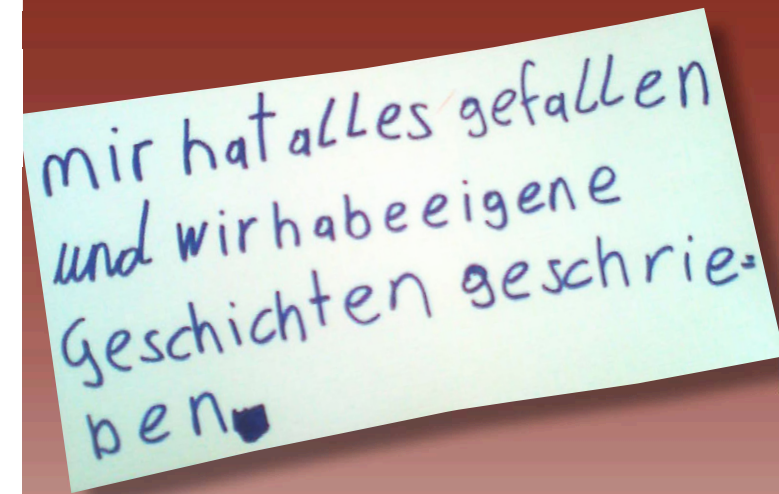 mir hat alles gefallen
und wir habe eigene
Geschichten geschrie=
ben.